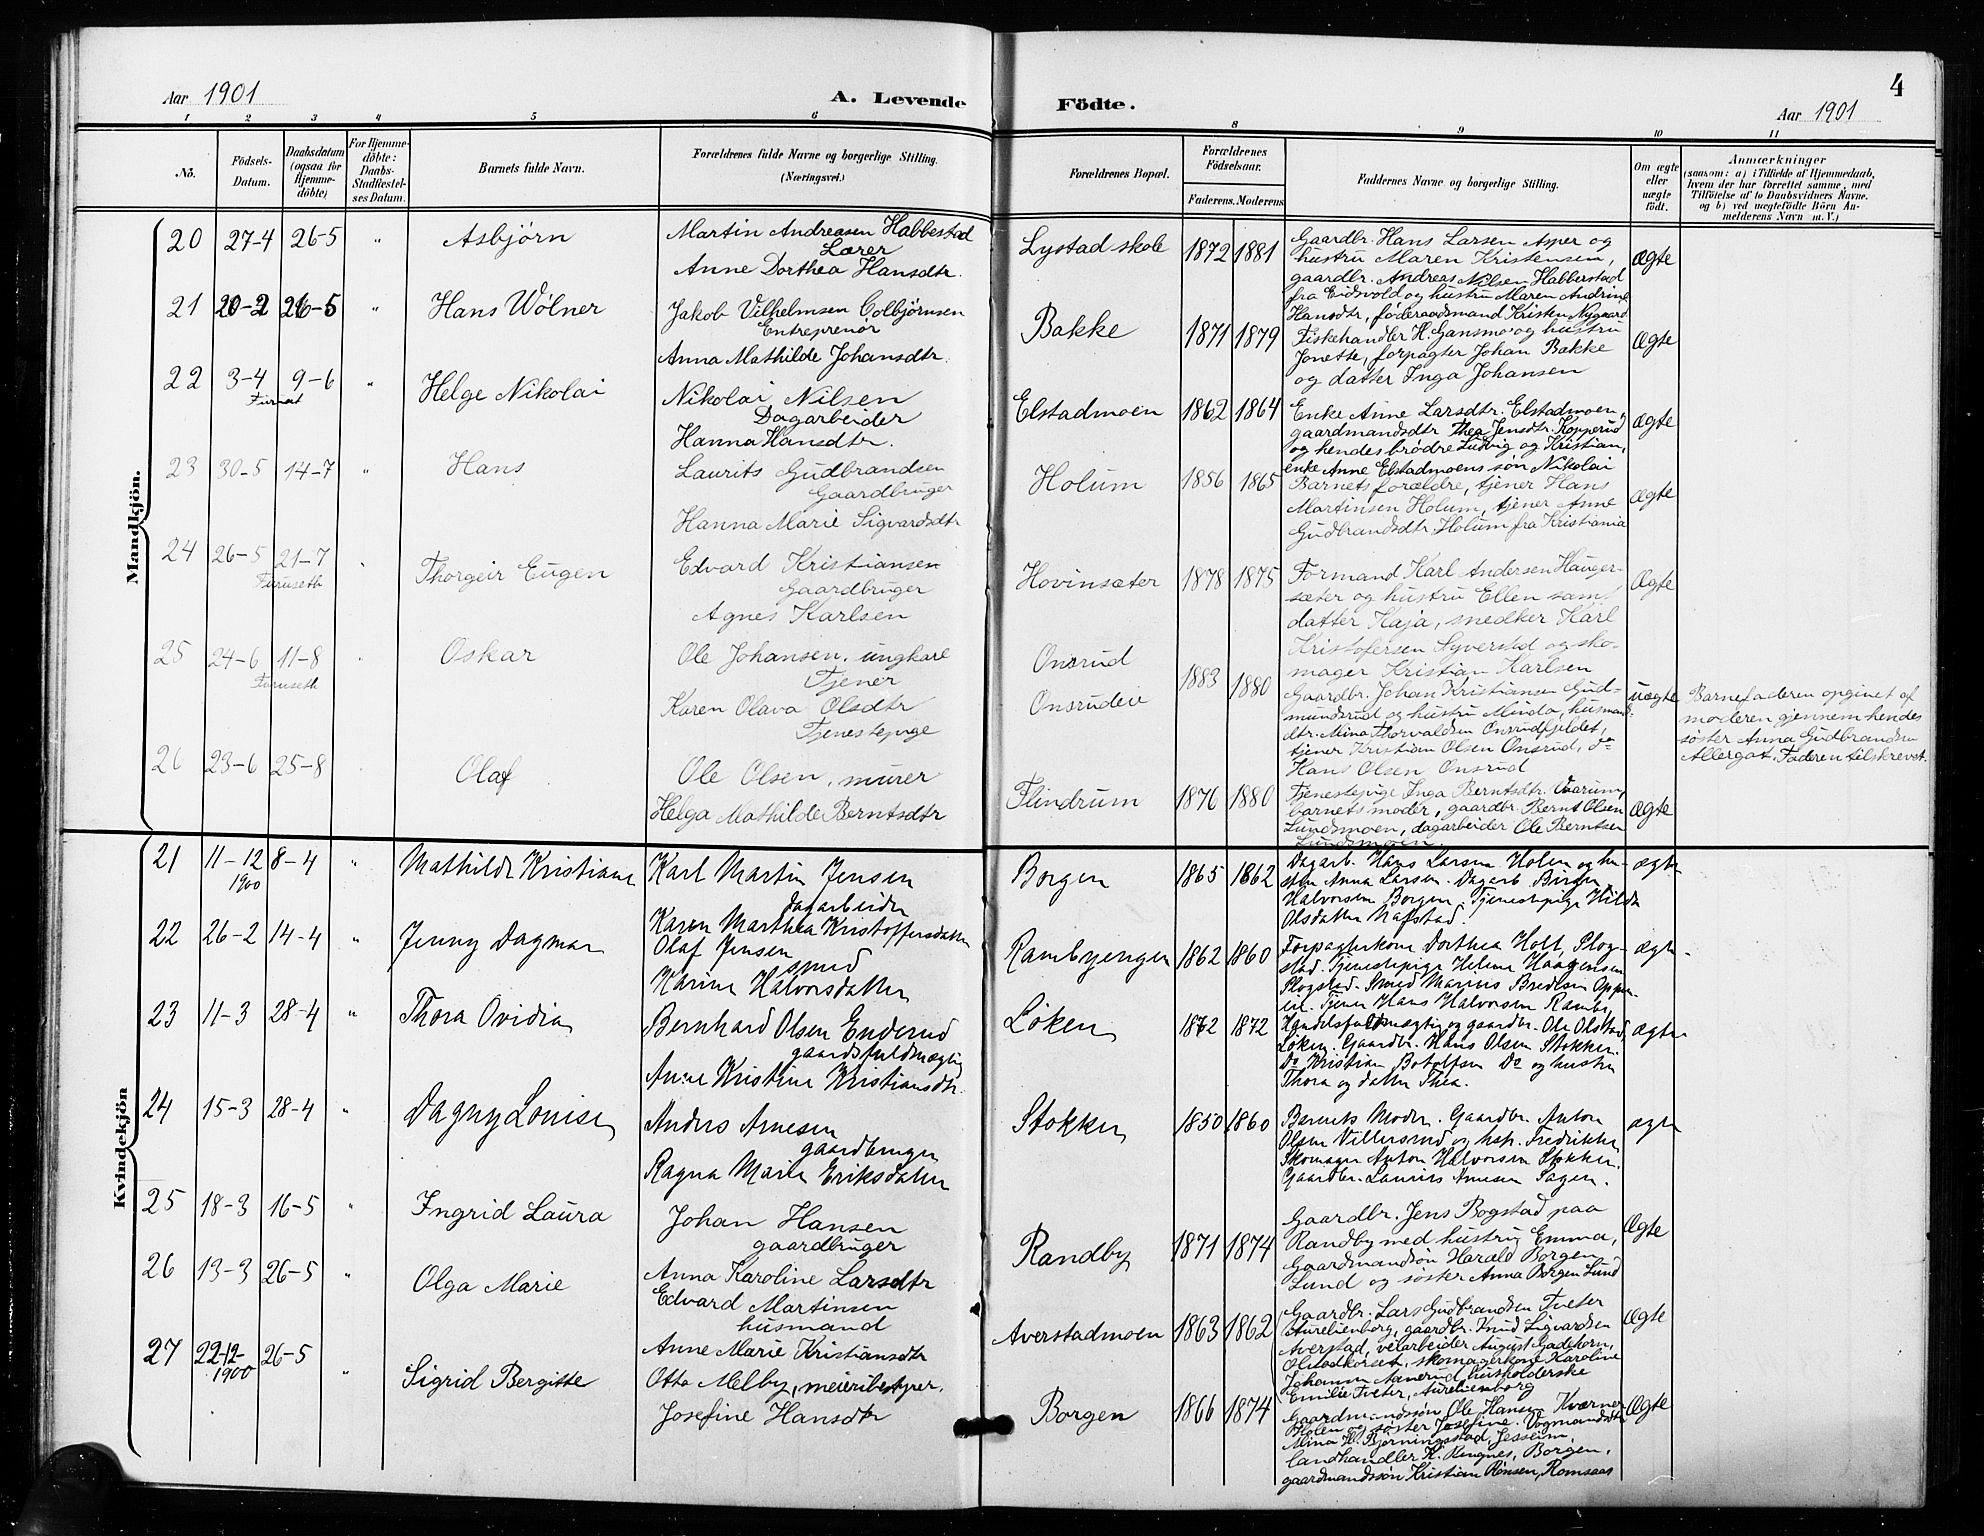 Aar 1901
A. Levende
Födte.
4
Aar 1901
1 2 3 4 5 6 8 9 10 11
No.
Födsels-Datum.
Daabsdatum (ogsaa for Hjemme-döbte)
For Hjemme-döbte: Daabs-Stadfæstel-ses Datum.
Barnets fulde Navn.
Forældrenes fulde Navne og borgerlige Stilling.
(Næringsvei.)
Forældrenes Bopæl.
Forældrenes Födselsaar.
Faderens. Moderens
Faddernes Navne og borgerlige Stilling.
Om ægte eller uægte födt.
Anmærkninger
(saasom: a) i Tilfælde af Hjemmedaab,
hvem der har forrettet samme, med
Tilföielse af to Daabsvidners Navne.
og b) ved uægtefödte Börn An-
melderens Navn m. V.)
Mandkjön.
20 27-4 26-5 " Asbjörn
Martin Andreasen Habbestad
Lærer
Anne Dorthea Hansdtr.
Lystad skole 1872 1881
Gaardbr. Hans Larsen Asper og
hustru Maren Kristensen,
gaardbr. Andreas Nilsen Habberstad
fra Eidsvold og hustru Maren Andrine
Hansdtr, föderaadsmand Kristen Nygaard
Ægte
21 20-2 26-5 " Hans Wölner
Jakob Vilhelmsen Colbjörnsen
Entreprenör
Anna Mathilde Johansdtr.
Bakke 1871 1879
Fiskehandler H. Gansmo og hustru
Jonette, forpagter Johan Bakke
og datter Inga Johansen
Ægte
22 3-4 9-6 " Helge Nikolai
Furuset
Nikolai Nilsen
Dagarbeider
Hanna Hansdtr.
Elstadmoen 1862 1864
Enke Anne Larsdtr. Elstadmoen,
gaardmandsdtr Thea Jensdtr. Kopperud
og hendes brödre Ludvig og Kristian,
enke Anne Elstadmoens sön Nikolai
Ægte
23 30-5 14-7 " Hans
Laurits Gudbrandsen
Gaardbruger
Hanna Marie Sigvardsdtr
Holum 1856 1865
Barnets forældre, tjener Hans
Martinsen Holum, tjener Anne
Gudbrandsdtr. Holum fra Kristiania
Ægte
24 26-5 21-7 " Thorgeir Eugen
Furuseth
Edvard Kristiansen
Gaardbruger
Agnes Karlsen
Hovinsæter 1878 1875
Formand Karl Andersen Hauger-
sæter og hustru Ellen samt
datter Kaja, snedker Karl
Kristofersen Syverstad og sko-
mager Kristian Karlsen
Ægte
25 24-6 11-8 " Oskar
Furuseth
Ole Johansen, ungkarl
Tjener
Karen Olava Olsdtr
Tjenestepige
Onsrud
Onsrudeie
1883 1880
Gaardbr. Johan Kristiansen Gud-
mundsrud og hustru Minda, husmands-
dtr. Mina Thorvaldsen Onsrudfjeldet,
tjener Kristian Olsen Onsrud, do
Hans Olsen Onsrud
uægte
Barnefaderen opgivet af
moderen gjennem hendes
söster Anna Gudbrandsen
Allergot. Faderen tilskrevet.
26 23-6 25-8 Olaf
Ole Olsen, murer
Helga Mathilde Berntsdtr
Flindrum 1876 1880
Tjenestepige Inga Berntsdtr. Vaarum,
barnets moder, gaardbr. Bernt Olsen
Lundsmoen, dagarbeider Ole Berntsen
Lundsmoen.
Ægte
Kvindekjön
21 11-12 1900 8-4 " Mathilde Kristiane
Karl Martin Jensen
dagarbeider
Karen Marthea Kristoffersdatter
Borgen 1865 1862
Dagarb. Hans Larsen Holen og hu-
stru Anna Larsen. Dagarb. Birger
Halvorsen Borgen. Tjenestepige Hilda
Olsdatter Nafstad.
ægte
22 26-2 14-4 " Jenny Dagmar
Olaf Jensen
smed
Karine Halvorsdatter
Rambyengen 1862 1860
Forpagterkone Dorthea Holt, Slog-
stad. Tjenestepige Helene Haagensen
Slogstad. Smed Marius Bredesen Oppe-
eie. Tjener Hans Halvorsen Ramby
ægte
23 11-3 28-4 " Thora Ovidia
Bernhard Olsen Enderud
gaardsfuldmægtig
Anne Kristine Kristiansdtr.
Löken 1872 1872
Handelsfuldmægtig og gaardbr. Ole Olstad
Löken. Gaardbr. Hans Olsen Stokker.
Do Kristian Botolfsen Do og hustru
Thora og datter Thea.
ægte
24 15-3 28-4 " Dagny Louise
Anders Arnesen
gaardbruger
Ragna Marie Eriksdatter
Stokker 1850 1860
Barnets Moder. Gaardbr. Anton
Olsen Villersrud og hst. Fredrikke
Skomager Anton Halvorsen Stokker.
Gaardbr. Laurits Arnesen Sagen.
ægte
25 18-3 16-5 " Ingrid Laura
Johan Hansen
gaardbruger
Anna Karoline Larsdtr
Randby 1871 1874
Gaardbr. Jens Bogstad paa
Randby med hustru Emma,
Gaardmandsön Harald Borgen
Lund og söster Anna Borgen Lund
Ægte
26 13-3 26-5 " Olga Marie
Edvard Martinsen
husmand
Anne Marie Kristiansdtr
Averstadmoen 1863 1862
Gaardbr. Lars Gudbrandsen Tveter
Aurelienborg, gaardbr. Knud Sigvardsen
Averstad, veiarbeider August Gadehorn,
Olstadkorset, skomagerkone Karoline
Johansen Aanerud, husholderske
Emilie Tveter, Aurelienborg
Ægte
27 22-12-1900 26-5 " Sigrid Bergitte
Otto Melby, meieribestyrer.
Josefine Hansdtr
Borgen 1866 1874
Gaardmandssön Ole Hansen Kværner
Holen og söster Josefine. Vognmandsdtr
Mina H. Bjerningstad, Jessheim,
landhandler K. Ringnes, Borgen,
gaardmandssön Kristian Rönsen, Romsaas
Ægte